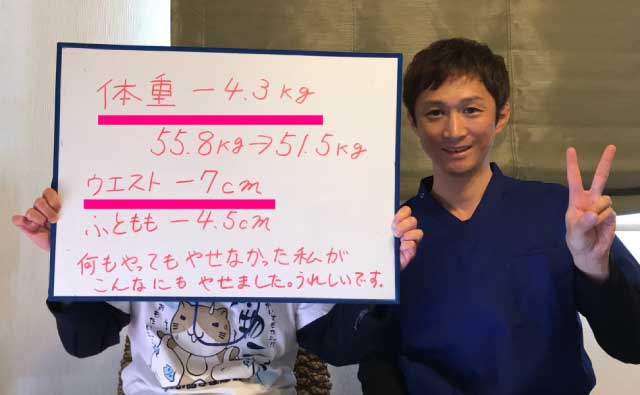 体重 －4.3kg
55.8kg→51.5kg
ウエスト －7cm
ふともも －4.5cm
何もやってもやせなかった私が
こんなにも やせました。うれしいです。